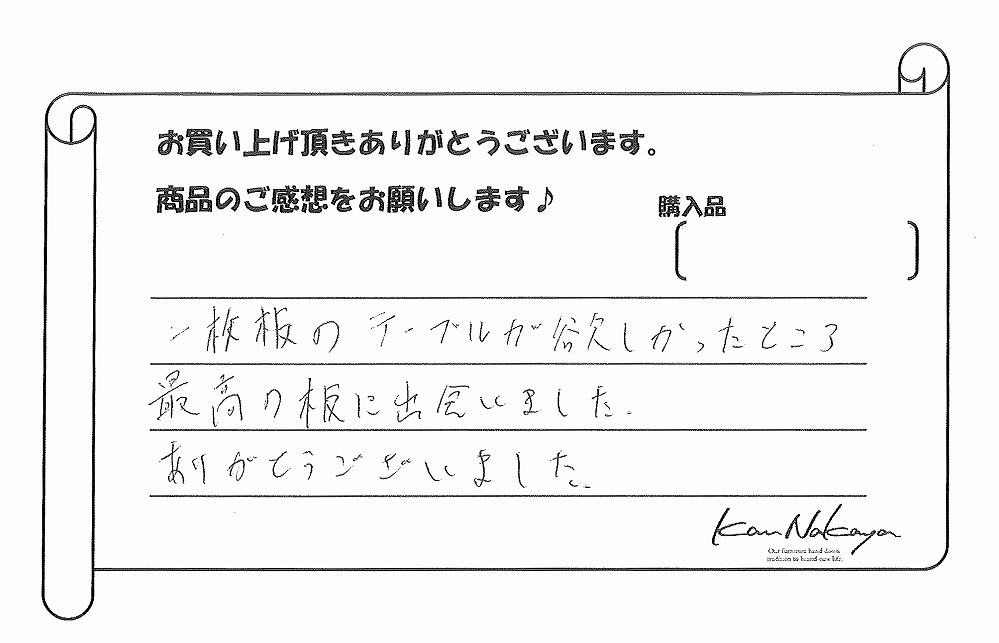 お買い上げ頂きありがとうございます。
商品のご感想をお願いします♪
購入品
一枚板のテーブルが欲しかったところ
最高の板に出会いました.
ありがとうございました.
Kan Nakaya
Our furniture hand down
tradition to brand-new life.